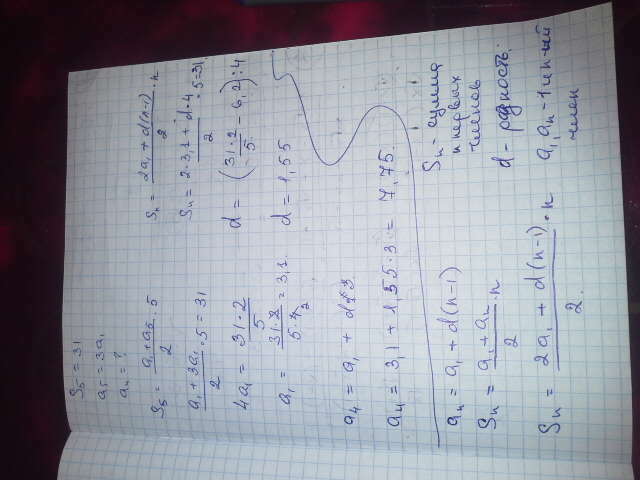 S₅ = 31
a₅ = 3a₁
a₄ = ?
S₅ = (a₁ + a₅)/2 · 5
(a₁ + 3a₁)/2 · 5 = 31
4a₁ = (31 · 2)/5
a₁ = (31 · 2)/(5 · 4 2) = 3,1.
a₄ = a₁ + d · 3
a₄ = 3,1 + 1,55 · 3 = 7,75.
Sₙ = (2a₁ + d(n-1))/2 · n
Sₙ = (2 · 3,1 + d · 4)/2 · 5 = 31
d = ((31 · 2)/5 - 6,2) : 4
d = 1,55
aₙ = a₁ + d(n-1)
Sₙ = (a₁ + aₙ)/2 · n
Sₙ = (2a₁ + d(n-1))/2 · n
Sₙ - сумма
n первых
членов
d - разность.
a₁, aₙ - 1 и n-ый
член